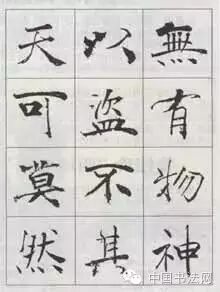 無有物神
以盜不其
天可莫然
中国书法网